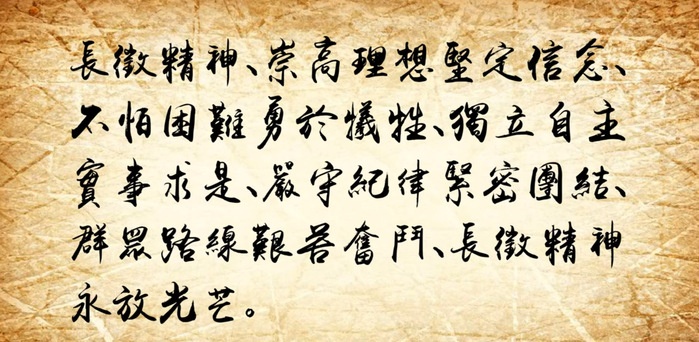 長徵精神、崇高理想堅定信念、
不怕困難勇於犧牲、獨立自主
實事求是、嚴守紀律緊密團結、
群眾路線艱苦奮鬥、長徵精神
永放光芒。